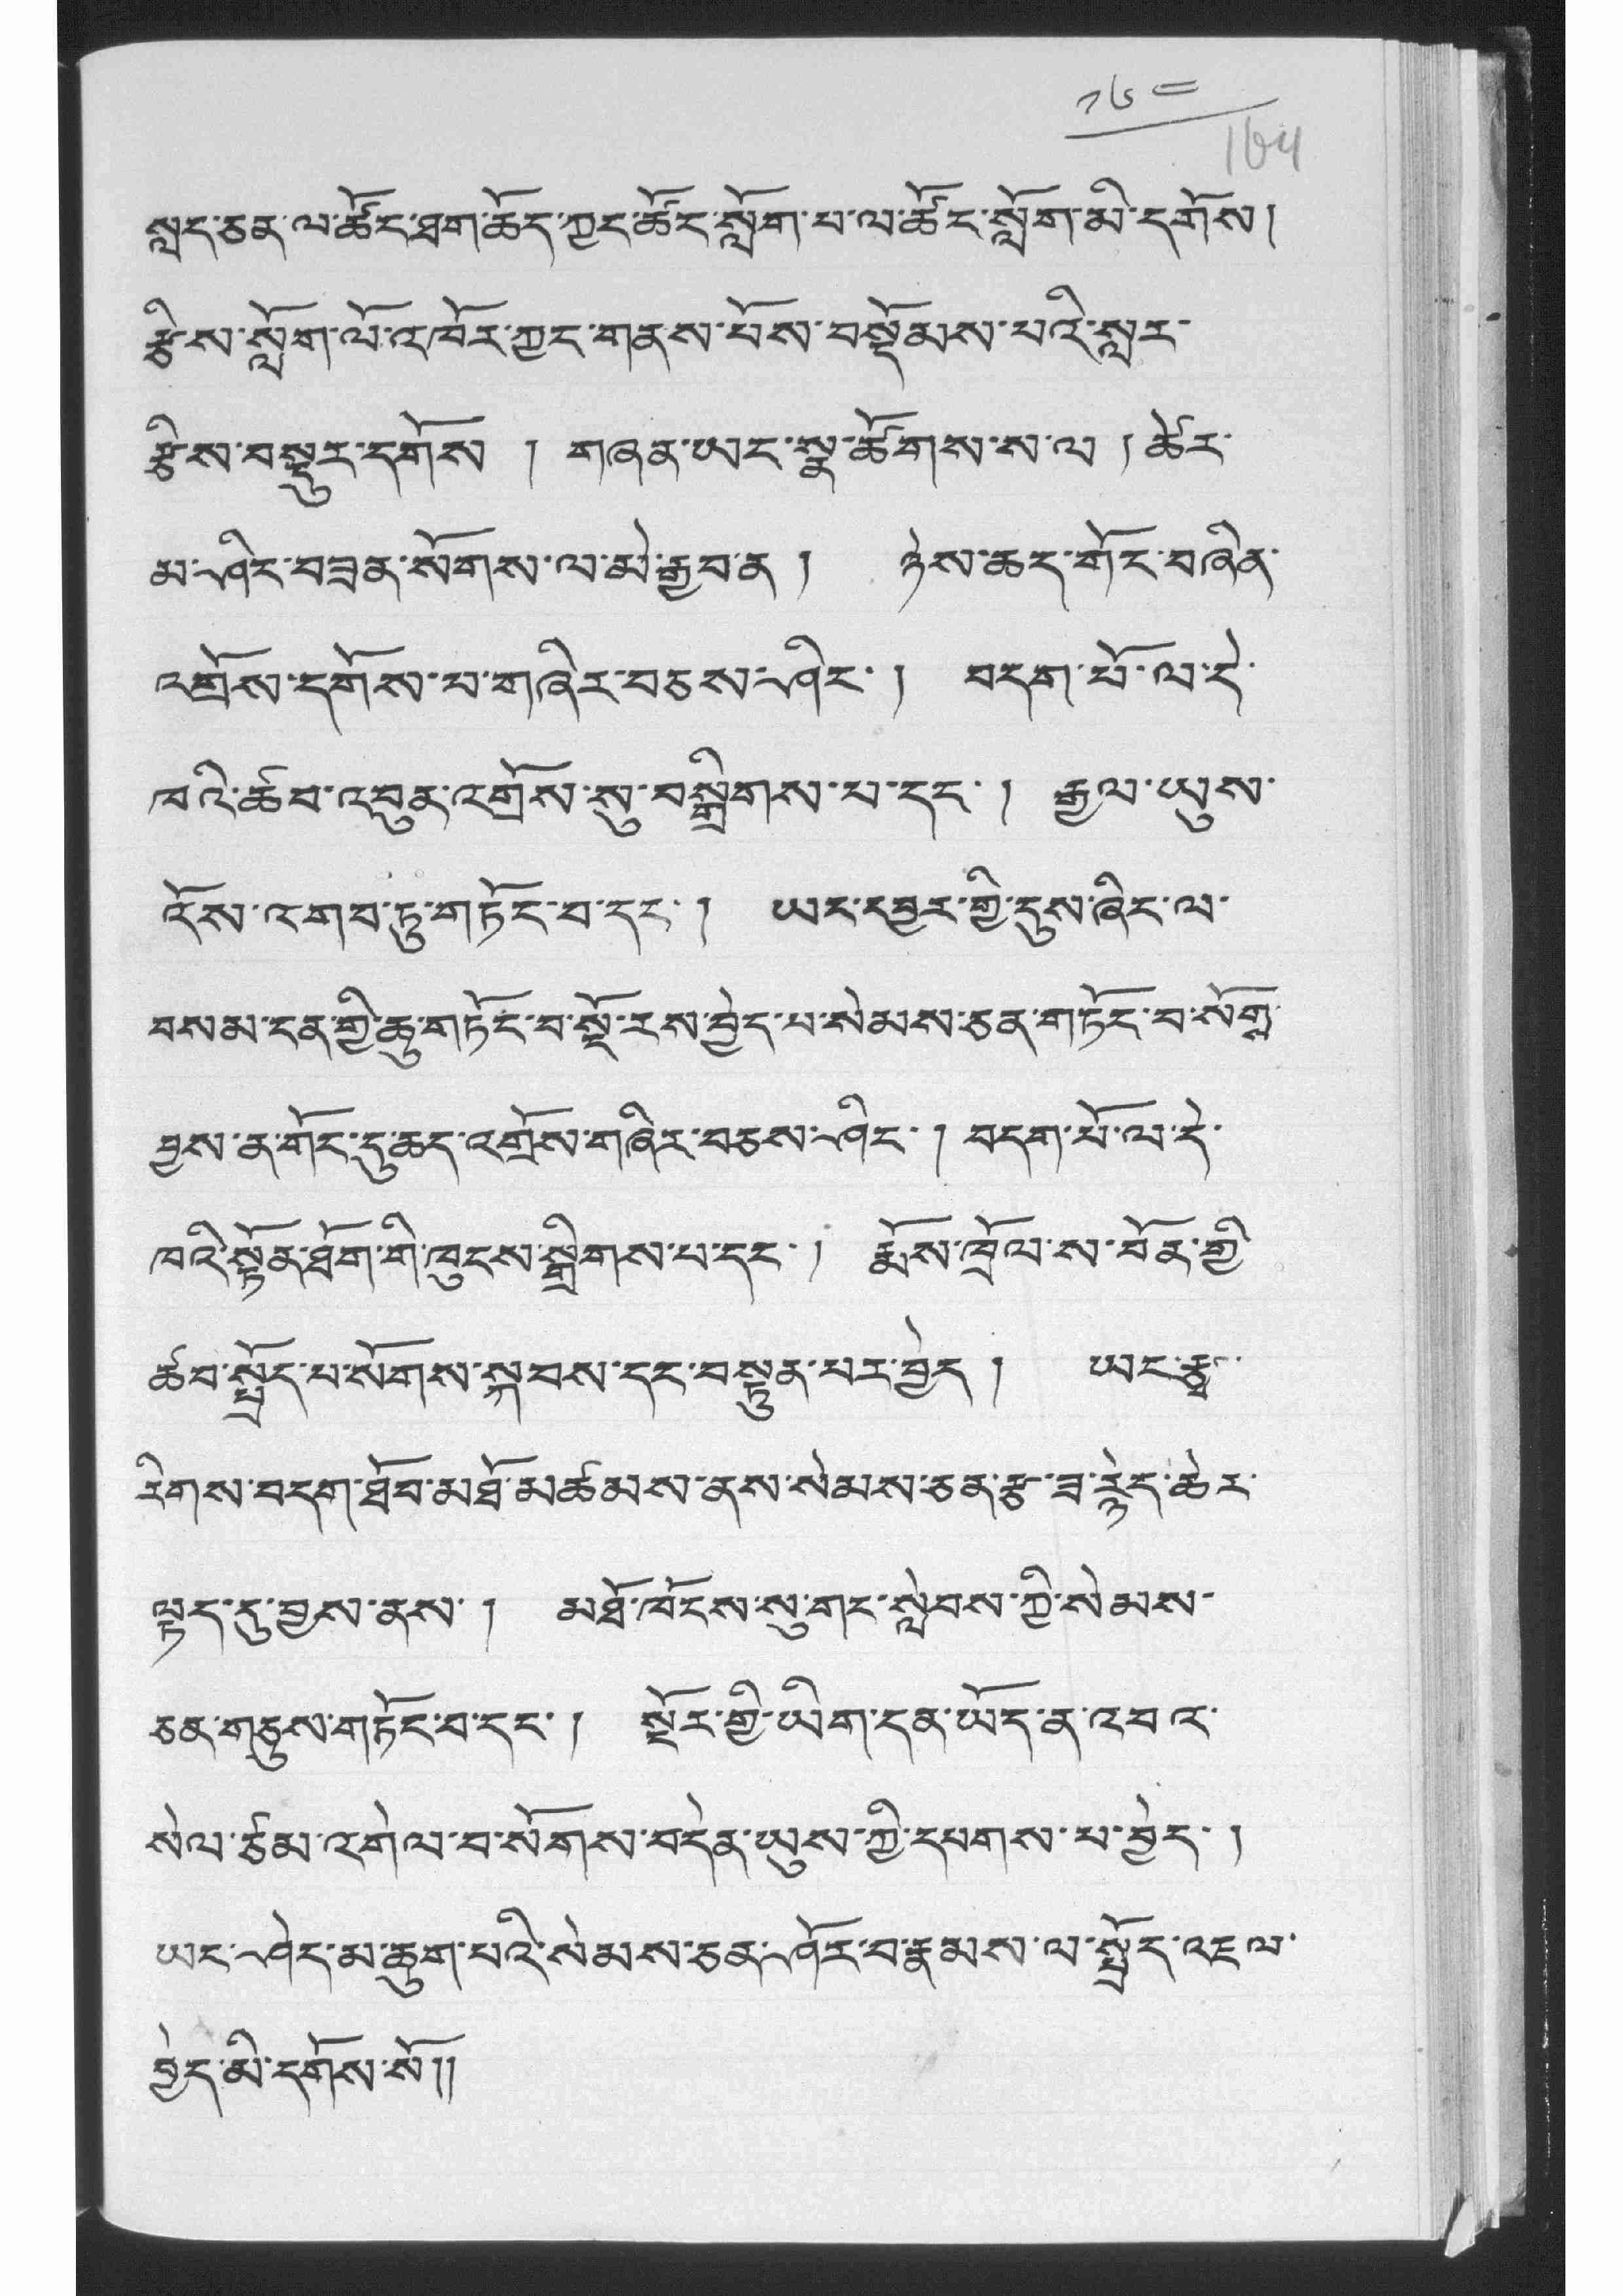 ༡༦༠
164
སླང་ཅན་ལ་ཚོང་ཐག་ཆོད་ཀྱང་ཚོང་སློག་པ་ལ་ཚོང་སློག་མི་དགོས།
རྩིས་སློག་ལོ་འཁོར་ཀྱང་གནས་པོས་བསྡོམས་པའི་སླར་
རྩིས་བསྡུར་དགོས ། གཞན་ཡང་སྣ་ཚོགས་ས་ལ ། ཚེར་
མ་ཤིང་བཟན་སོགས་ལ་མེ་རྒྱབ་ན ། ཉེས་ཆད་གོང་བཞིན་
འགྲོས་དགོས་པ་གཞིར་བཅས་ཤིང་ ། བདག་པོ་ལ་དེ་
ཁའི་ཚབ་འབུན་འགྲོས་སུ་བསྒྲིགས་པ་དང་ ། རྒྱལ་ཡུས་
འོས་འགབ་ཏུ་གཏོང་བ་དང་ ། ཡང་དབྱར་གྱི་དུས་ཞིང་ལ་
བསམ་དན་གྱི་ཆུ་གཏོང་བ་སྔོ་རས་བྱེད་པ་སེམས་ཅན་གཏོང་བ་སོགས
བྱས་ན་གོང་དུ་ཆད་འགྲོས་གཞིར་བཅས་ཤིང་ ། བདག་པོ་ལ་དེ་
ཁའི་སྟོན་ཐོག་གི་ཁུངས་སྒྲིགས་པ་དང་ ། རྨོས་ཁོལ་ས་བོན་གྱི
ཚབ་སྤྲོད་པ་སོགས་སྐབས་དང་བསྟུན་པར་བྱེད ། ཡང་རྩྭ་
རིགས་བདག་ཐོབ་མཐོ་མཚམས་ནས་སེམས་ཅན་རྩ་ཟ་རྙེད་ཚེར་
ལྟད་དུ་བྱས་ནས་ ། མཐོ་ཁོངས་སུ་གང་སླེབས་ཀྱི་སེམས་
ཅན་གཅུས་གཏོང་བ་དང་ ། སྔོར་གྱི་ཡིག་དན་ཡོད་ན་འབའ་
སེལ་ཙམ་འགེལ་བ་སོགས་བདེན་ཡུས་ཀྱི་དབགས་པ་བྱེད་ །
ཡང་ཤེད་མ་ཆུག་པའི་སེམས་ཅན་ཤོར་བ་རྣམས་ལ་སྤྲོད་འཇལ་
བྱེད་མི་དགོས་སོ།།